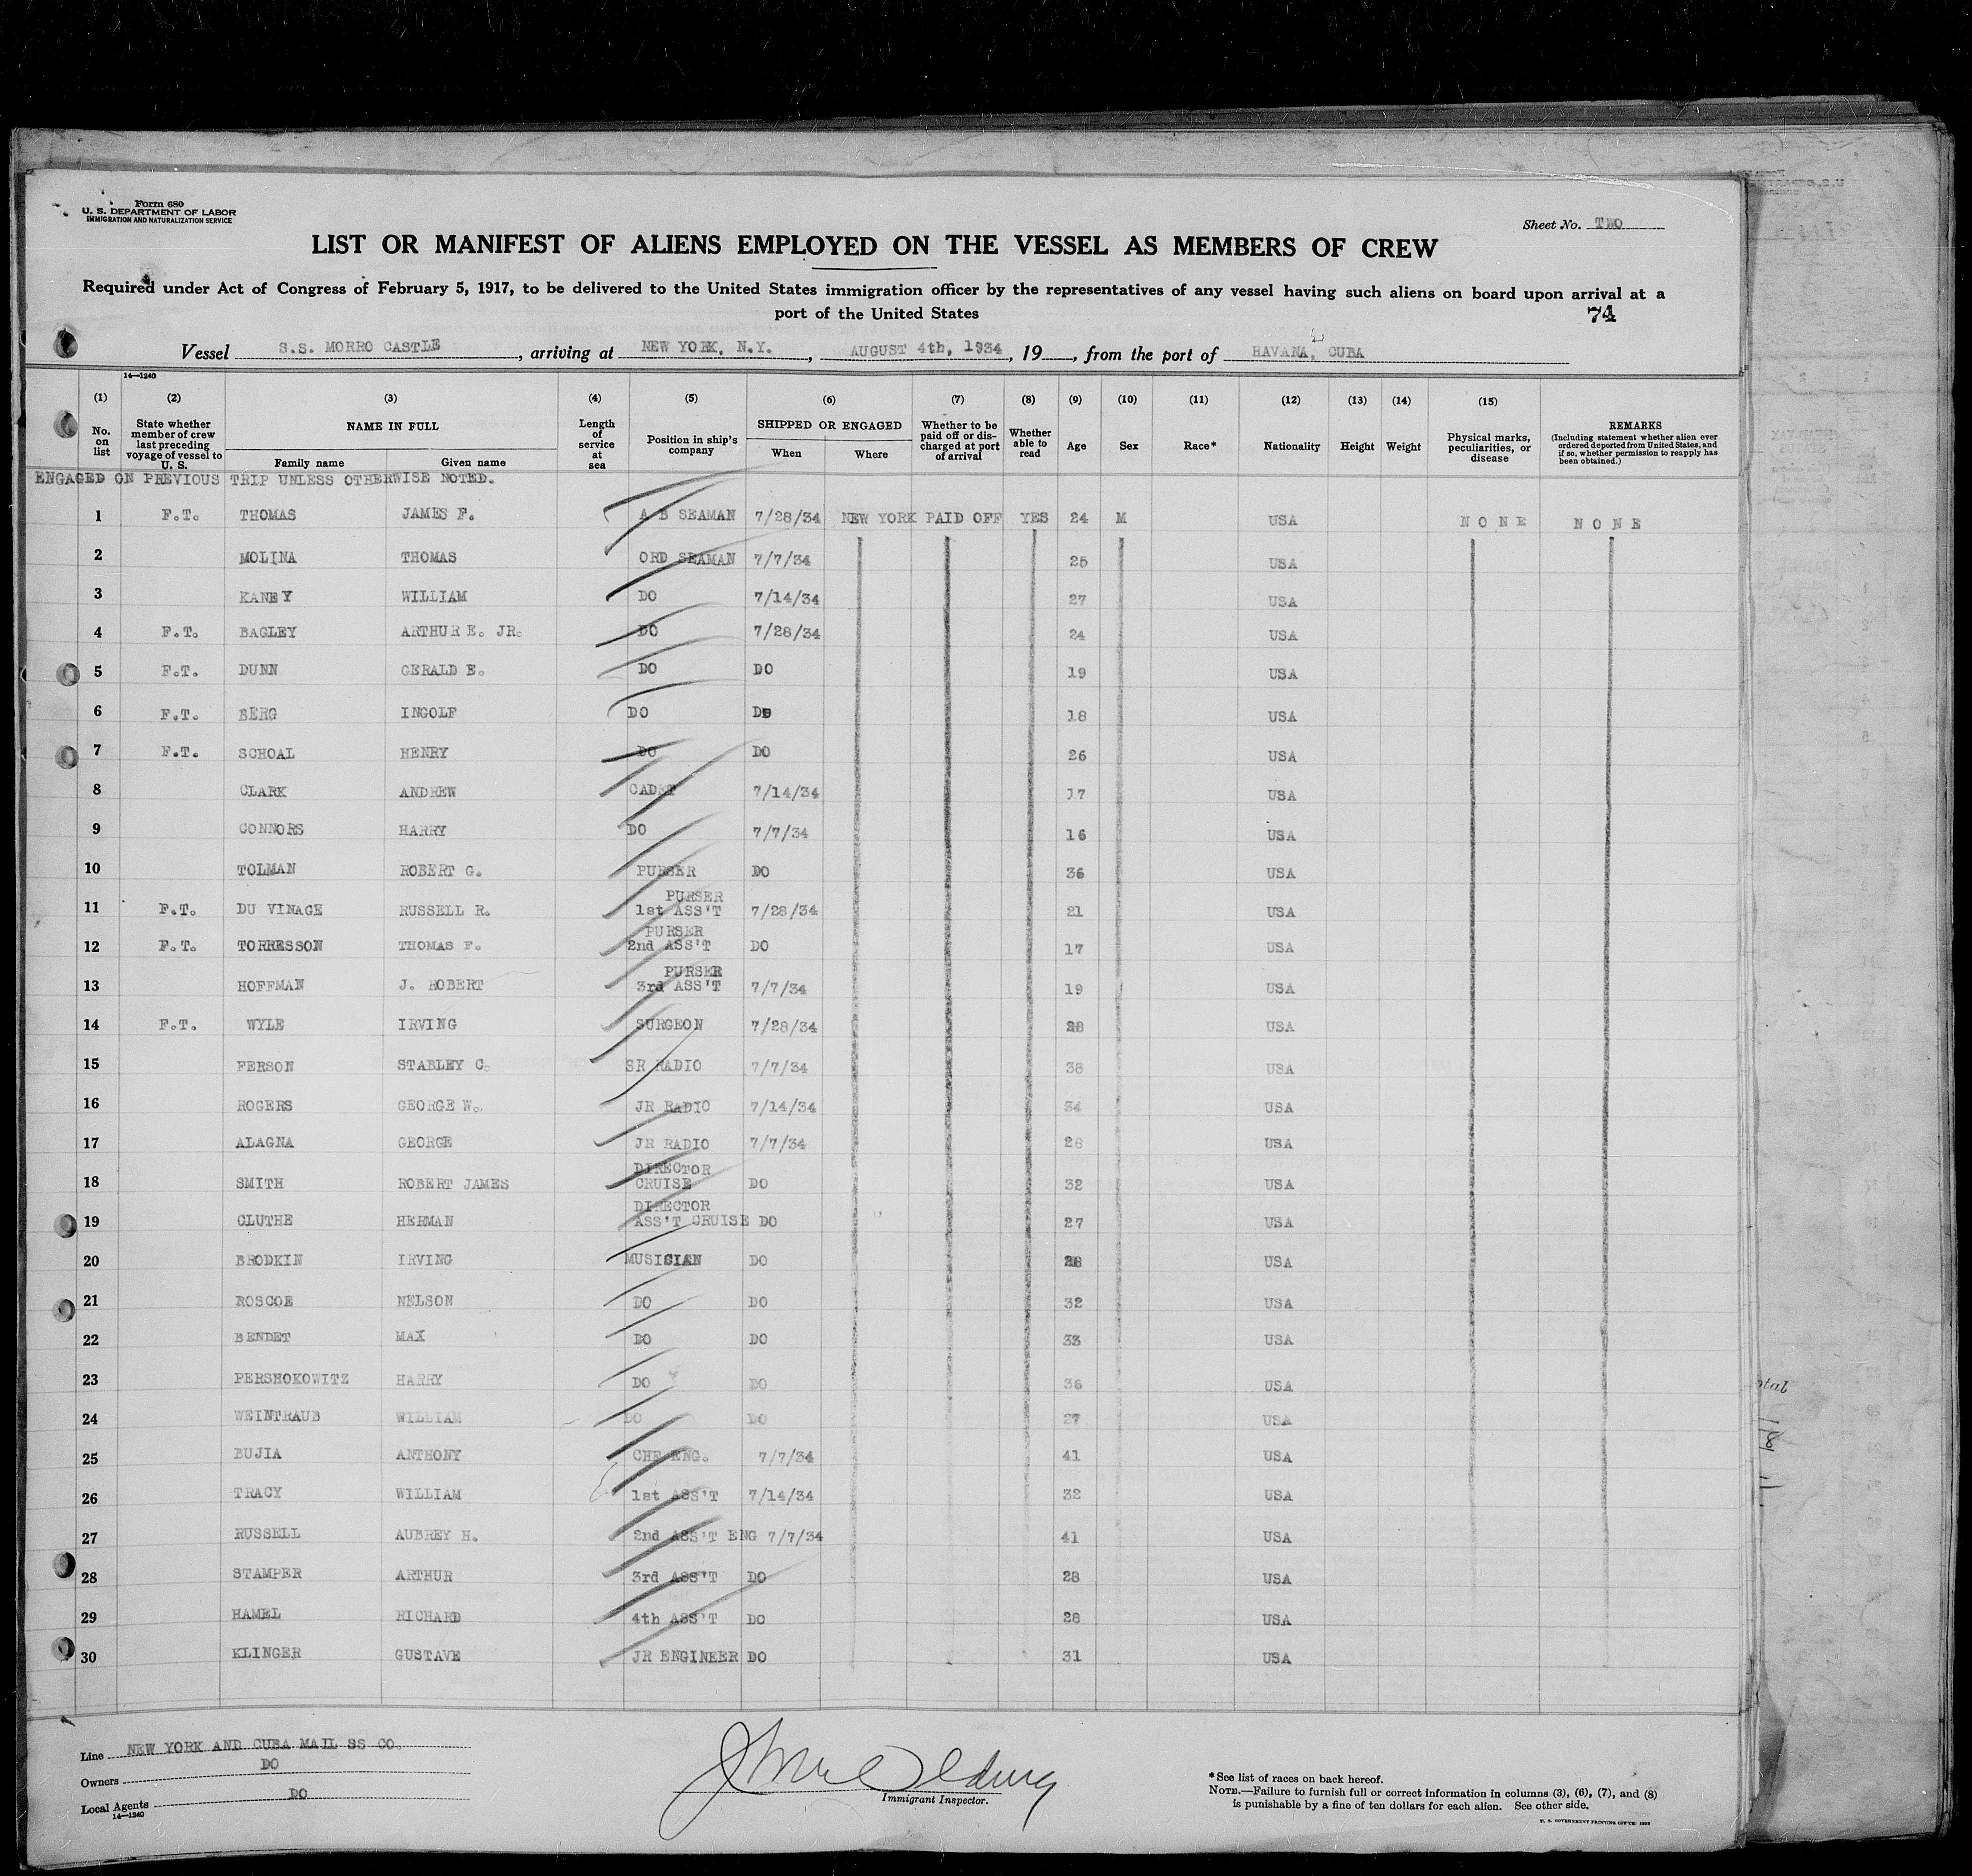 Form 680
U. S. DEPARTMENT OF LABOR
IMMIGRATION AND NATURALIZATION SERVICE
Sheet No. TWO
LIST OR MANIFEST OF ALIENS EMPLOYED ON THE VESSEL AS MEMBERS OF CREW
Required under Act of Congress of February 5, 1917, to be delivered to the United States immigration officer by the representatives of any vessel having such aliens on board upon arrival at a
port of the United States
74
Vessel S.S. MORRO CASTLE, arriving at NEW YORK, N.Y., AUGUST 4th, 1934, 19, from the port of HAVANA, CUBA
14—1240
(1) (2) (3) (4) (5) (6) (7) (8) (9) (10) (11) (12) (13) (14) (15)
No. on list
State whether member of crew last preceding voyage of vessel to U. S.
NAME IN FULL
Family name Given name
Length of service at sea
Position in ship's company
SHIPPED OR ENGAGED
When Where
Whether to be paid off or discharged at port of arrival
Whether able to read
Age
Sex
Race*
Nationality
Height
Weight
Physical marks, peculiarities, or disease
REMARKS
(Including statement whether alien ever ordered deported from United States, and if so, whether permission to reapply has been obtained.)
ENGAGED ON PREVIOUS TRIP UNLESS OTHERWISE NOTED.
1 F.T. THOMAS JAMES F. A B SEAMAN 7/28/34 NEW YORK PAID OFF YES 24 M USA NONE NONE
2 MOLINA THOMAS ORD SEAMAN 7/7/34 25 USA
3 KANEY WILLIAM DO 7/14/34 27 USA
4 F.T. BAGLEY ARTHUR E. JR. DO 7/28/34 24 USA
5 F.T. DUNN GERALD E. DO DO 19 USA
6 F.T. BERG INGOLF DO DO 18 USA
7 F.T. SCHOAL HENRY DO DO 26 USA
8 CLARK ANDREW CADET 7/14/34 17 USA
9 CONNORS HARRY DO 7/7/34 16 USA
10 TOLMAN ROBERT G. PURSER DO 36 USA
11 F.T. DU VINAGE RUSSELL R. PURSER 1st ASS'T 7/28/34 21 USA
12 F.T. TORRESSON THOMAS F. PURSER 2nd ASS'T DO 17 USA
13 HOFFMAN J. ROBERT PURSER 3rd ASS'T 7/7/34 19 USA
14 F.T. WYLE IRVING SURGEON 7/28/34 28 USA
15 FERSON STABLEY C. SR RADIO 7/7/34 38 USA
16 ROGERS GEORGE W. JR RADIO 7/14/34 34 USA
17 ALAGNA GEORGE JR RADIO 7/7/34 28 USA
18 SMITH ROBERT JAMES DIRECTOR CRUISE DO 32 USA
19 CLUTHE HERMAN DIRECTOR ASS'T CRUISE DO 27 USA
20 BRODKIN IRVING MUSICIAN DO USA
21 ROSCOE NELSON DO DO 32 USA
22 BENDET MAX DO DO 33 USA
23 PERSHOKOWITZ HARRY DO DO 36 USA
24 WEINTRAUB WILLIAM DO DO 27 USA
25 BUJIA ANTHONY CHF ENG. 7/7/34 41 USA
26 TRACY WILLIAM 1st ASS'T 7/14/34 32 USA
27 RUSSELL AUBREY H. 2nd ASS'T ENG 7/7/34 41 USA
28 STAMPER ARTHUR 3rd ASS'T DO 28 USA
29 HAMEL RICHARD 4th ASS'T DO 28 USA
30 KLINGER GUSTAVE JR ENGINEER DO 31 USA
Line NEW YORK AND CUBA MAIL SS CO.
Owners DO
Local Agents DO
14—1240
Immigrant Inspector.
*See list of races on back hereof.
NOTE.—Failure to furnish full or correct information in columns (3), (6), (7), and (8)
is punishable by a fine of ten dollars for each alien. See other side.